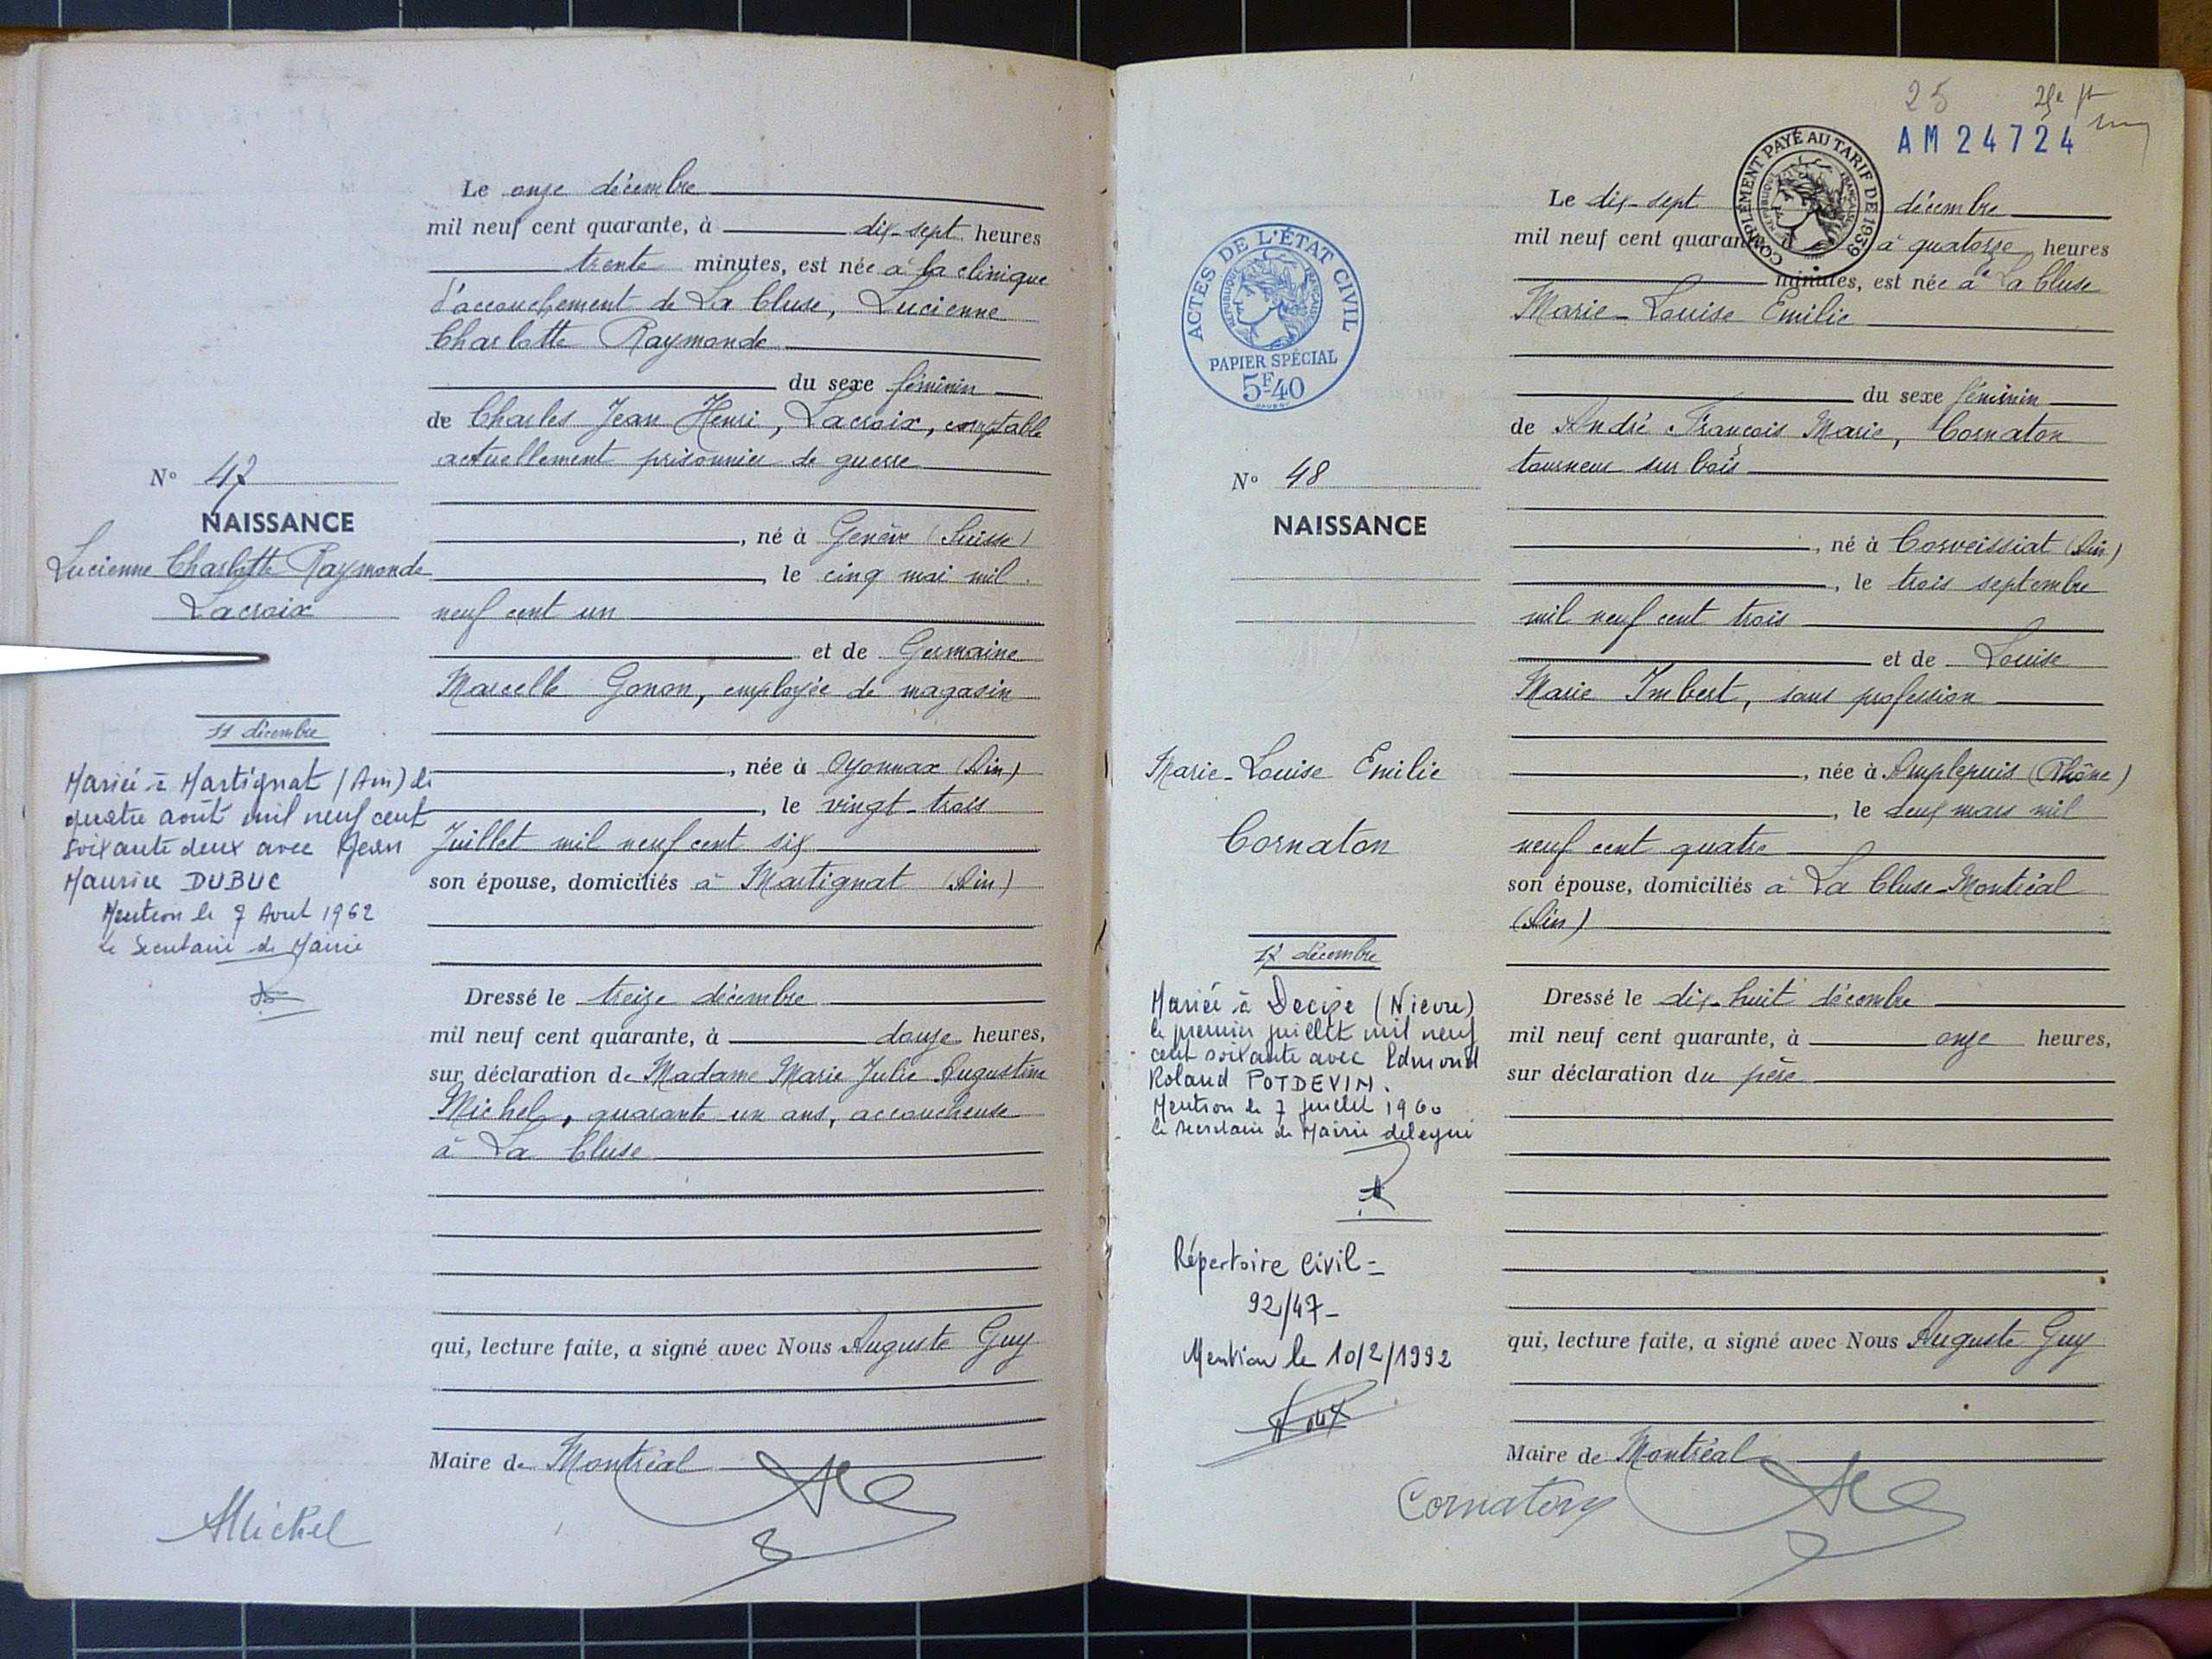 Le onze décembre
mil neuf cent quarante, à dix-sept heures
trente minutes, est née à la clinique
d'accouchement de La Cluse, Lucienne
Charlotte Raymonde
du sexe féminin
de Charles Jean Henri, Lacroix, comptable
actuellement prisonnier de guerre
N° 47
NAISSANCE
Lucienne Charlotte Raymonde
Lacroix
, né à Genève (Suisse)
, le cinq mai mil
neuf cent un
et de Germaine
Marcelle Gonon, employée de magasin
11 décembre
Mariée à Martignat (Ain) le
quatre août mil neuf cent
soixante deux avec Jean
Maurice DUBUC
Mention le 7 Août 1962
Le Secrétaire de Mairie
, née à Oyonnax (Ain)
, le vingt-trois
Juillet mil neuf cent six
son épouse, domiciliés à Martignat (Ain)
Dressé le treize décembre
mil neuf cent quarante, à douze heures,
sur déclaration de Madame Marie Julie Augustine
Michel, quarante un ans, accoucheuse
à La Cluse
qui, lecture faite, a signé avec Nous Auguste Guy
Maire de Montréal
AMichel
25
AM24724
COMPLÉMENT PAYÉ AU TARIF DE 1939
RÉPUBLIQUE FRANÇAISE
ACTES DE L'ÉTAT CIVIL
RÉPUBLIQUE FRANÇAISE
PAPIER SPÉCIAL
5F40
Le dix-sept décembre
mil neuf cent quarante à quatorze heures
minutes, est née à La Cluse
Marie-Louise Emilie
du sexe féminin
de André François Marie, Cornaton
tourneur sur bois
N° 48
NAISSANCE
, né à Corveissiat (Ain)
, le trois septembre
mil neuf cent trois
et de Louise
Marie Imbert, sans profession
Marie-Louise Emilie
Cornaton
, née à Amplepuis (Rhône)
, le neuf mars mil
neuf cent quatre
son épouse, domiciliés à La Cluse-Montréal
(Ain)
17 décembre
Mariée à Decize (Nievre)
le premier juillet mil neuf
cent soixante avec Edmond
Roland POTDEVIN.
Mention le 7 juillet 1960
Le Secrétaire de Mairie délégué
Répertoire Civil =
92/47-
Mention le 10/2/1992
Dressé le dix-huit décembre
mil neuf cent quarante, à onze heures,
sur déclaration du père
qui, lecture faite, a signé avec Nous Auguste Guy
Maire de Montréal
Cornaton